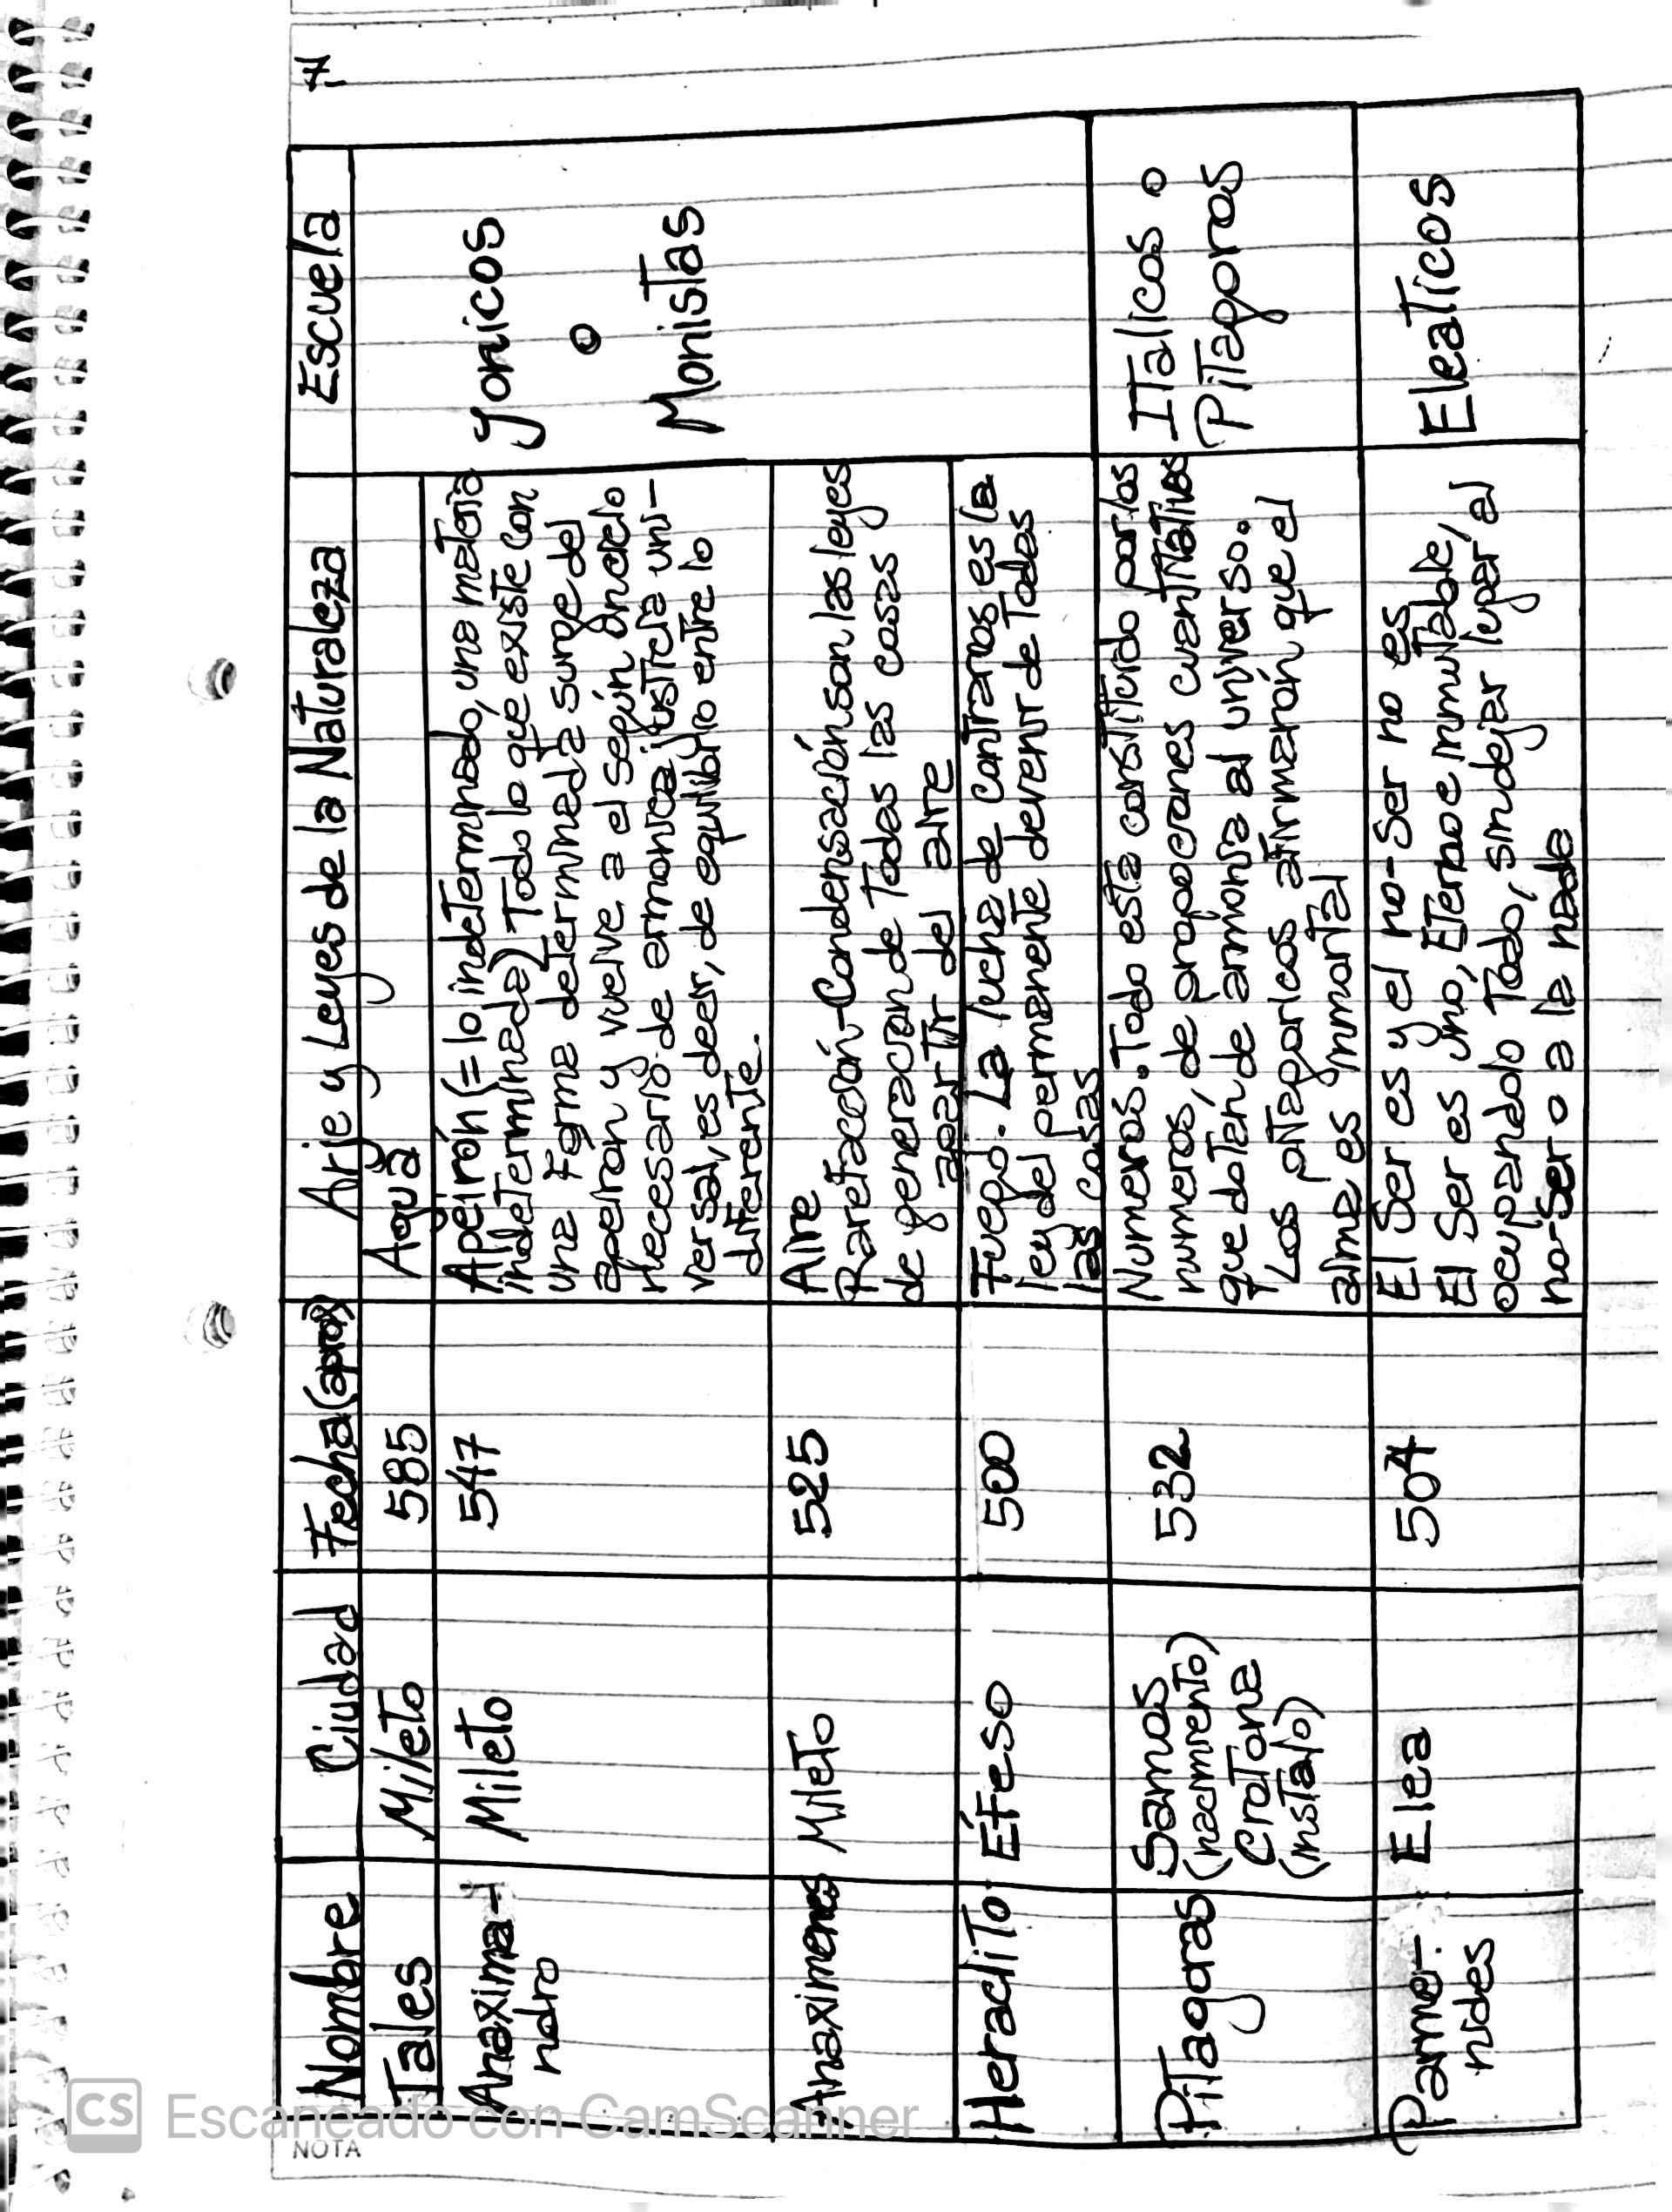 7
Nombre
Ciudad
Fecha (aprox)
Arje y Leyes de la Naturaleza
Escuela
Tales
Mileto
585
Agua
Yonicos
o
Monistas
Anaxima-
ndro
Mileto
547
Apeirón (= lo indeterminado, una materia
indeterminada) Todo lo qué existe con
una forma determinada surge del
apeirón y vuelve a el según un ciclo
necesario de armonica justicia uni-
versal, es decir, de equilibrio entre lo
diferente.
Anaximenes
Mileto
525
Aire
Rarefacción-Condensación son las leyes
de generacion de Todas las cosas
a partir del aire
Heraclito
Éfeso
500
Fuego. La lucha de contrarios es la
ley del permanente devenir de Todas
las cosas
Pitagoras
Samos
(nacimiento)
Crotona
(instalo)
532
Numeros. Todo esta constituido por los
numeros, de propocranes cuantitativos
que doten de armonia al universo.
Los pitagoricos afirmarón que el
alma es inmortal
Italicos o
Pitagoros
Parme-
nides
Elea
504
El Ser es y el no-ser no es
El Ser es uno, Eterno e inmutable,
ocupandolo Todo, sin dejar lugar al
no-Ser o a la nada
Eleaticos
NOTA
CS Escaneado con CamScanner